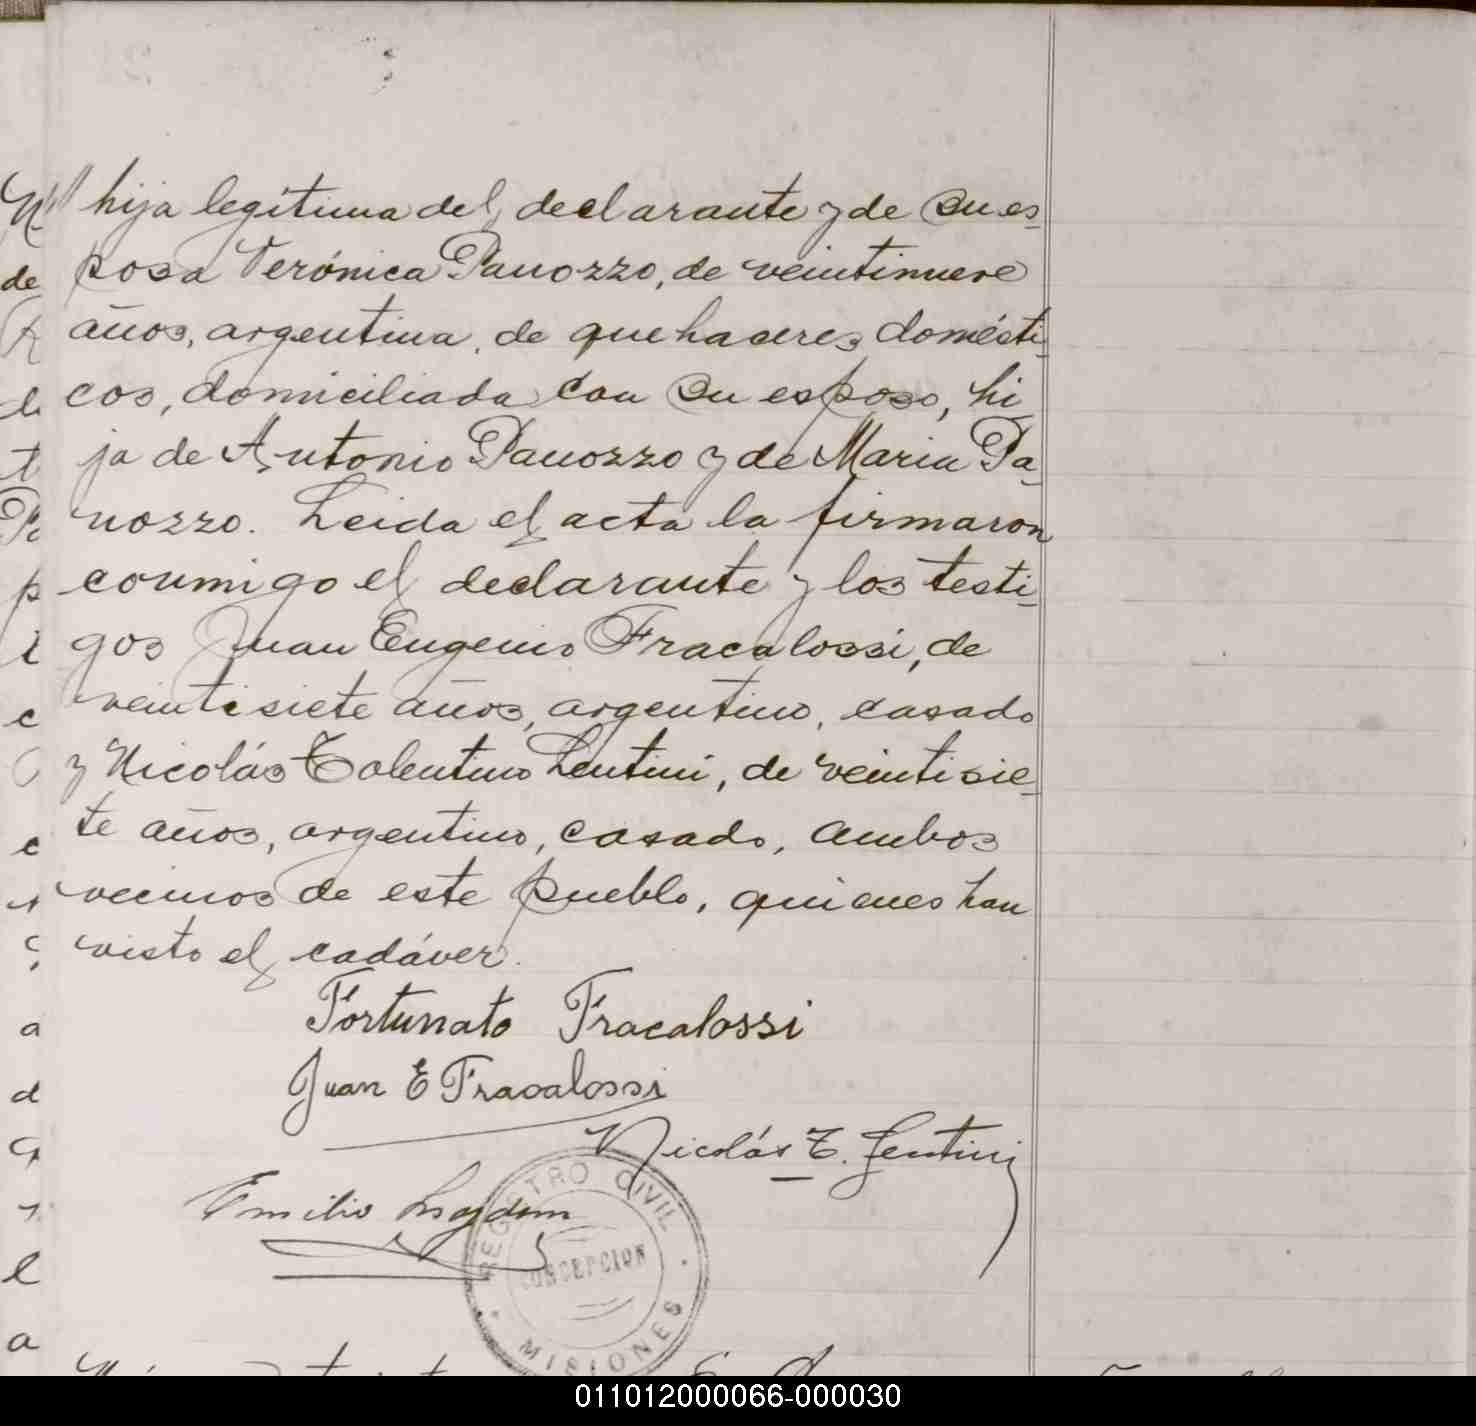 hija legítima del declarante y de su es-
posa Verónica Panozzo, de veintinueve
años, argentina, de quehaceres domésti-
cos, domiciliada con su esposo, hi
ja de Antonio Panozzo y de Maria Pa-
nozzo. Leida el acta la firmaron
conmigo el declarante y los testi-
gos Juan Eugenio Fracalossi, de
veintisiete años, argentino, casado
y Nicolás Tolentino Lentini, de veintisie-
te años, argentino, casado, ambos
vecinos de este pueblo, quienes han
visto el cadáver.
Fortunato Fracalossi
Juan E Fracalossi
Nicolás T. Lentini
Emilio
REGISTRO CIVIL
CONCEPCION
MISIONES
011012000066-000030